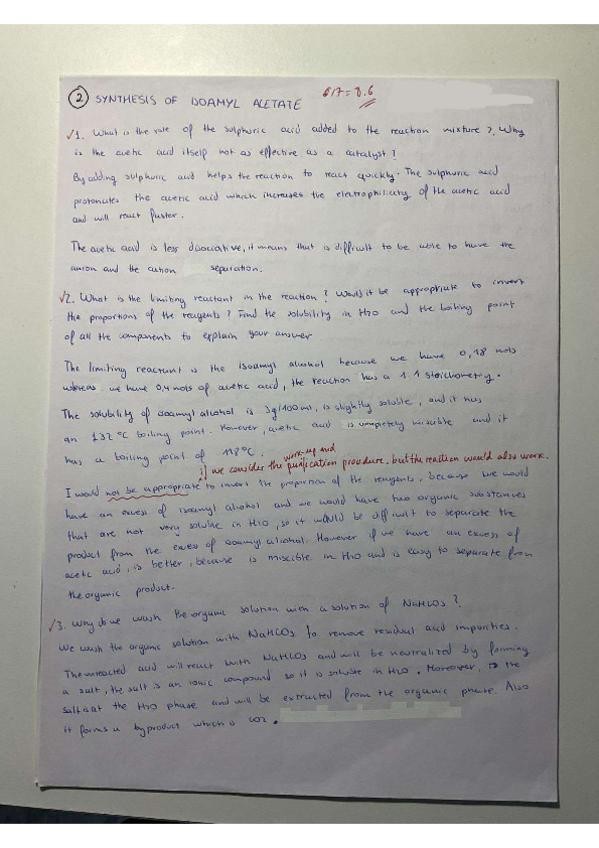 ② SYNTHESIS OF ISOAMYL ACETATE 6/7 = 8.6
√1. What is the role of the sulphuric acid added to the reaction mixture? Why
is the acetic acid itself not as effective as a catalyst?
By adding sulphuric acid helps the reaction to react quickly. The sulphuric acid
protonates the acetic acid which increases the electrophilicity of the acetic acid
and will react faster.
The acetic acid is less dissociative, it means that is difficult to be able to have the
anion and the cation separation.
√2. What is the limiting reactant in the reaction? Would it be appropriate to invert
the proportions of the reagents? Find the solubility in H2O and the boiling point
of all the components to explain your answer
The limiting reactant is the isoamyl alcohol because we have 0,18 mols
whereas we have 0,4 mols of acetic acid, the reaction has a 1:1 stoichiometry.
The solubility of isoamyl alcohol is 3g/100ml, is slightly soluble, and it has
an 132°C boiling point. However, acetic acid is completely miscible and it
has a boiling point of 118°C.
work-up and
if we consider the purification procedure, but the reaction would also work.
I would not be appropriate to invert the proportion of the reagents, because we would
have an excess of isoamyl alcohol and we would have two organic substances
that are not very soluble in H2O, so it would be difficult to separate the
product from the excess of isoamyl alcohol. However if we have an excess of
acetic acid, is better, because is miscible in H2O and is easy to separate from
the organic product.
√3. Why do we wash the organic solution with a solution of NaHCO3?
We wash the organic solution with NaHCO3 to remove residual acid impurities.
The unreacted acid will react with NaHCO3 and will be neutralized by forming
a salt, the salt is an ionic compound so it is soluble in H2O. Moreover, the
salt is at the H2O phase and will be extracted from the organic phase. Also
it forms a byproduct which is CO2.